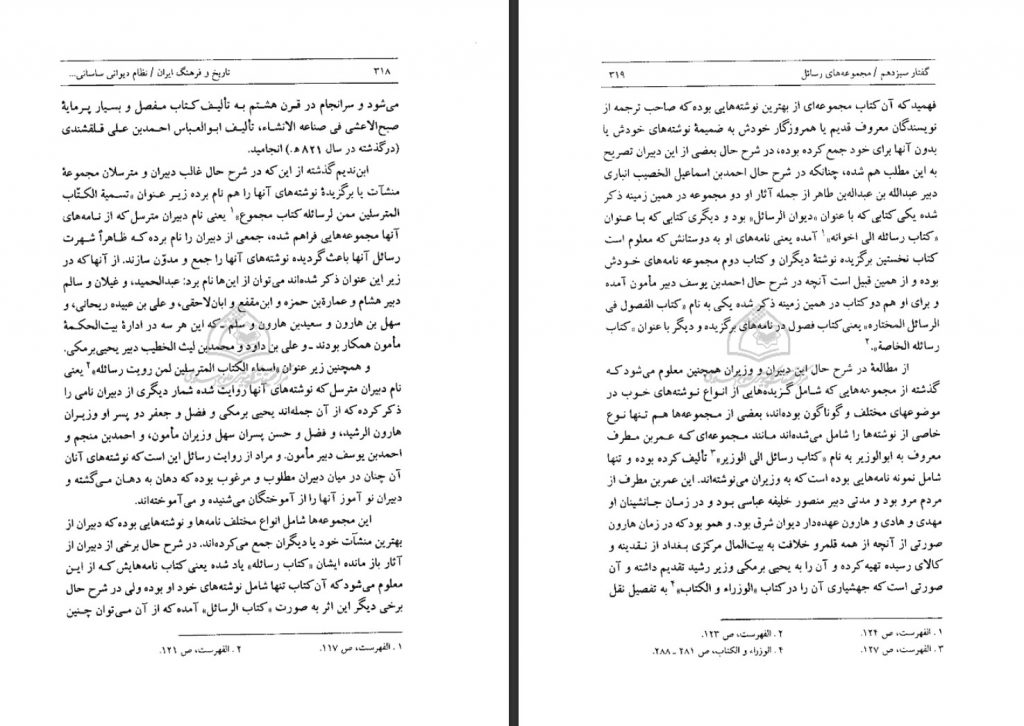 ۳۱۸ تاریخ و فرهنگ ایران / نظام دیوانی ساسانی...
می‌شود و سرانجام در قرن هشتم به تألیف کتاب مفصل و بسیار پرمایهٔ
صبح‌الاعشی فی صناعه الانشاء، تألیف ابوالعباس احمدبن علی قلقشندی
(درگذشته در سال ۸۲۱ ه‍.) انجامید.
ابن‌ندیم گذشته از این که در شرح حال غالب دبیران و مترسلان مجموعهٔ
منشآت یا برگزیدهٔ نوشته‌های آنها را هم نام برده زیر عنوان «تسمیة الکتّاب
المترسلین ممن لرسائله کتاب مجموع»۱ یعنی نام دبیران مترسل که از نامه‌های
آنها مجموعه‌هایی فراهم شده، جمعی از دبیران را نام برده که ظاهراً شهرت
رسائل آنها باعث گردیده نوشته‌های آنها را جمع و مدوّن سازند. از آنها که در
زیر این عنوان ذکر شده‌اند می‌توان از این‌ها نام برد: عبدالحمید، و غیلان و سالم
دبیر هشام و عمارةبن حمزه و ابن‌مقفع و ابان‌لاحقی، و علی بن عبیده ریحانی، و
سهل بن هارون و سعیدبن هارون و سلم ـ که این هر سه در ادارهٔ بیت‌الحکمهٔ
مأمون همکار بودند ـ و علی بن داود و محمدبن لیث الخطیب دبیر یحیی‌برمکی.
و همچنین زیر عنوان «اسماء الکتاب المترسلین لمن رویت رسائله»۲ یعنی
نام دبیران مترسل که نوشته‌های آنها روایت شده شمار دیگری از دبیران نامی را
ذکر کرده که از آن جمله‌اند یحیی برمکی و فضل و جعفر دو پسر او وزیران
هارون الرشید، و فضل و حسن پسران سهل وزیران مأمون، و احمدبن منجم و
احمدبن یوسف دبیر مأمون. و مراد از روایت رسائل این است که نوشته‌های آنان
آن چنان در میان دبیران مطلوب و مرغوب بوده که دهان به دهان می‌گشته و
دبیران نو آموز آنها را از آموختگان می‌شنیده و می‌آموخته‌اند.
این مجموعه‌ها شامل انواع مختلف نامه‌ها و نوشته‌هایی بوده که دبیران از
بهترین منشآت خود یا دیگران جمع می‌کرده‌اند. در شرح حال برخی از دبیران از
آثار باز مانده ایشان «کتاب رسائله» یاد شده یعنی کتاب نامه‌هایش که از این
معلوم می‌شود که آن کتاب تنها شامل نوشته‌های خود او بوده ولی در شرح حال
برخی دیگر این اثر به صورت «کتاب الرسائل» آمده که از آن می‌توان چنین
۱. الفهرست، ص ۱۱۷. ۲. الفهرست، ص ۱۲۱.
گفتار سیزدهم / مجموعه‌های رسائل ۳۱۹
فهمید که آن کتاب مجموعه‌ای از بهترین نوشته‌هایی بوده که صاحب ترجمه از
نویسندگان معروف قدیم یا همروزگار خودش به ضمیمهٔ نوشته‌های خودش یا
بدون آنها برای خود جمع کرده بوده، در شرح حال بعضی از این دبیران تصریح
به این مطلب هم شده، چنانکه در شرح حال احمدبن اسماعیل الخصیب انباری
دبیر عبدالله بن عبداله‌بن طاهر از جمله آثار او دو مجموعه در همین زمینه ذکر
شده یکی کتابی که با عنوان «دیوان الرسائل» بود و دیگری کتابی که با عنوان
«کتاب رسائله الی اخوانه»۱ آمده یعنی نامه‌های او به دوستانش که معلوم است
کتاب نخستین برگزیده نوشتهٔ دیگران و کتاب دوم مجموعه نامه‌های خودش
بوده و از همین قبیل است آنچه در شرح حال احمدبن یوسف دبیر مأمون آمده
و برای او هم دو کتاب در همین زمینه ذکر شده یکی به نام «کتاب الفصول فی
الرسائل المختاره» یعنی کتاب فصول در نامه‌های برگزیده و دیگر با عنوان «کتاب
رسائله الخاصة».۲
از مطالعهٔ در شرح حال این دبیران و وزیران همچنین معلوم می‌شود که
گذشته از مجموعه‌هایی که شامل گزیده‌هایی از انواع نوشته‌های خوب در
موضوعهای مختلف و گوناگون بوده‌اند، بعضی از مجموعه‌ها هم تنها نوع
خاصی از نوشته‌ها را شامل می‌شده‌اند مانند مجموعه‌ای که عمربن مطرف
معروف به ابوالوزیر به نام «کتاب رسائل الی الوزیر»۳ تألیف کرده بوده و تنها
شامل نمونه نامه‌هایی بوده است که به وزیران می‌نوشته‌اند. این عمربن مطرف از
مردم مرو بود و مدتی دبیر منصور خلیفه عباسی بود و در زمان جانشینان او
مهدی و هادی و هارون عهده‌دار دیوان شرق بود. و همو بود که در زمان هارون
صورتی از آنچه از همه قلمرو خلافت به بیت‌المال مرکزی بغداد از نقدینه و
کالای رسیده تهیه کرده و آن را به یحیی برمکی وزیر رشید تقدیم داشته و آن
صورتی است که جهشیاری آن را در کتاب «الوزراء و الکتاب»۴ به تفصیل نقل
۱. الفهرست، ص ۱۲۴. ۲. الفهرست، ص ۱۲۳.
۳. الفهرست، ص ۱۲۷. ۴. الوزراء و الکتاب، ص ۲۸۱ ـ ۲۸۸.